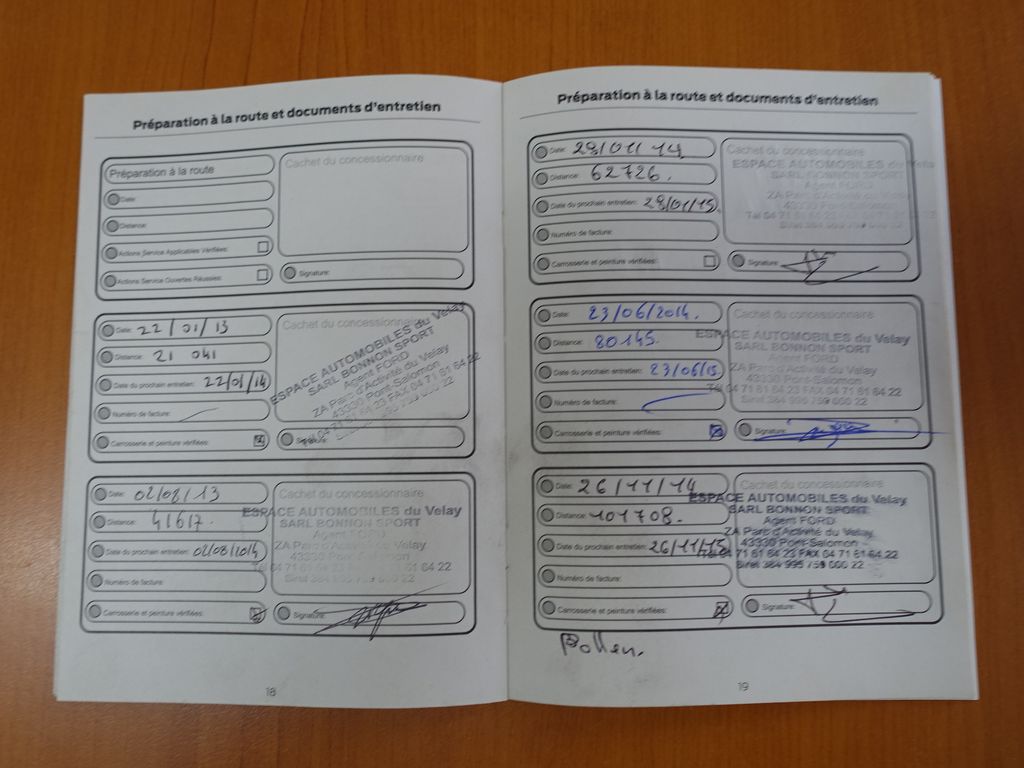 Préparation à la route et documents d'entretien
Préparation à la route
Date:
Distance:
Actions Service Applicables Vérifiées:
Actions Service Ouvertes Réussies:
Cachet du concessionnaire
Signature:
Date: 22/01/13
Distance: 21 041
Date du prochain entretien: 22/01/14
Numéro de facture:
Carrosserie et peinture vérifiées:
Cachet du concessionnaire
ESPACE AUTOMOBILES du Velay
SARL BONNON SPORT
Agent FORD
ZA Parc d'Activité du Velay
43330 Pont-Salomon
Tél 04 71 61 64 23 FAX 04 71 61 64 22
Signature:
Date: 02/08/13
Distance: 41617.
Date du prochain entretien: 02/08/2014
Numéro de facture:
Carrosserie et peinture vérifiées:
Cachet du concessionnaire
ESPACE AUTOMOBILES du Velay
SARL BONNON SPORT
Agent FORD
ZA Parc d'Activité du Velay
43330 Pont-Salomon
Tél 04 71 61 64 23 FAX 04 71 61 64 22
Siret 384 995 759 000 22
Signature:
18
Préparation à la route et documents d'entretien
Date: 28/01/14
Distance: 62726.
Date du prochain entretien: 28/01/15.
Numéro de facture:
Carrosserie et peinture vérifiées:
Cachet du concessionnaire
ESPACE AUTOMOBILES du Velay
SARL BONNON SPORT
Agent FORD
ZA Parc d'Activité du Velay
43330 Pont-Salomon
Tél 04 71 61 64 23 FAX 04 71 61 64 22
Signature:
Date: 23/06/2014.
Distance: 80145.
Date du prochain entretien: 23/06/15
Numéro de facture:
Carrosserie et peinture vérifiées:
Cachet du concessionnaire
ESPACE AUTOMOBILES du Velay
SARL BONNON SPORT
Agent FORD
ZA Parc d'Activité du Velay
43330 Pont-Salomon
Tél 04 71 61 64 23 FAX 04 71 61 64 22
Siret 384 995 759 000 22
Signature:
Date: 26/11/14
Distance: 101708.
Date du prochain entretien: 26/11/15
Numéro de facture:
Carrosserie et peinture vérifiées:
Cachet du concessionnaire
ESPACE AUTOMOBILES du Velay
SARL BONNON SPORT
Agent FORD
ZA Parc d'Activité du Velay
43330 Pont-Salomon
Tél 04 71 61 64 23 FAX 04 71 61 64 22
Siret 384 995 759 000 22
Signature:
Pollen.
19